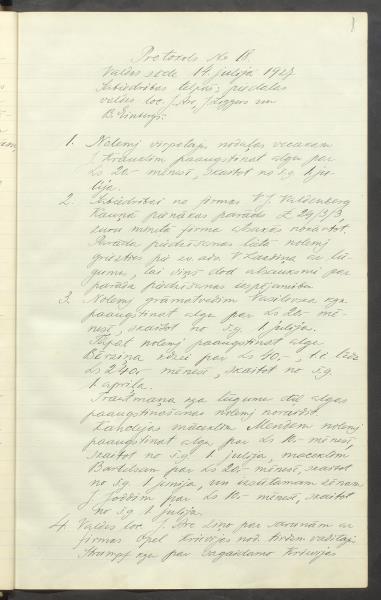 Protokols No 18.
Valdes sēde 14. jūlijā 1927
Sabiedrības telpās; piedalas
valdes loc. J. Are, J. Liggers un
B. Einbergs.
1. Nolemj virpotāju nodaļas vecakam
J. Kraulim paaugstinat algu par
Ls 20.- mēnesī, skaitot no š.g. 1 jū-
lija.
2. Sabiedrībai no firmas V. J. Valdenberg
Kauņā pienākas parads £ 29/3/3,
kuru minētā firma atsakās nokārtot.
Parāda piedzīšanas lietā nolemj
griezties pie zv. adv. V. Lasdiņa ar lū-
gumu, lai viņš dod atsauksmi par
parāda piedzīšanas iespējamību.
3. Nolemj grāmatvedim kgu
paaugstinat algu par Ls 20.- mē-
nesī, skaitot no š.g. 1 jūlija.
Tāpat nolemj paaugstinat algu
Bērziņa kdzei par Ls 40.-, t.i. līdz
Ls 240.- mēnesī, skaitot no š.g.
1 aprīļa.
Trautmaņa kga lūgumu dēļ algas
paaugstināšanas nolemj noraidīt.
Kantorijas māceklim Mendem nolemj
paaugstinat algu par Ls 10.- mēnesī,
skaitot no š.g. 1 jūlija, māceklim
Bartelsam par Ls 20.- mēnesī, skaitot
no š.g. 1 jūnija, un izsūtamam zēnam
J. par Ls 10.- mēnesī, skaitot
no š.g. 1 jūlija.
4. Valdes loc. J. Are ziņo par sarunām ar
firmas Opel Krievijas nod. vadītāju
Strumpf kgu par Krievijas